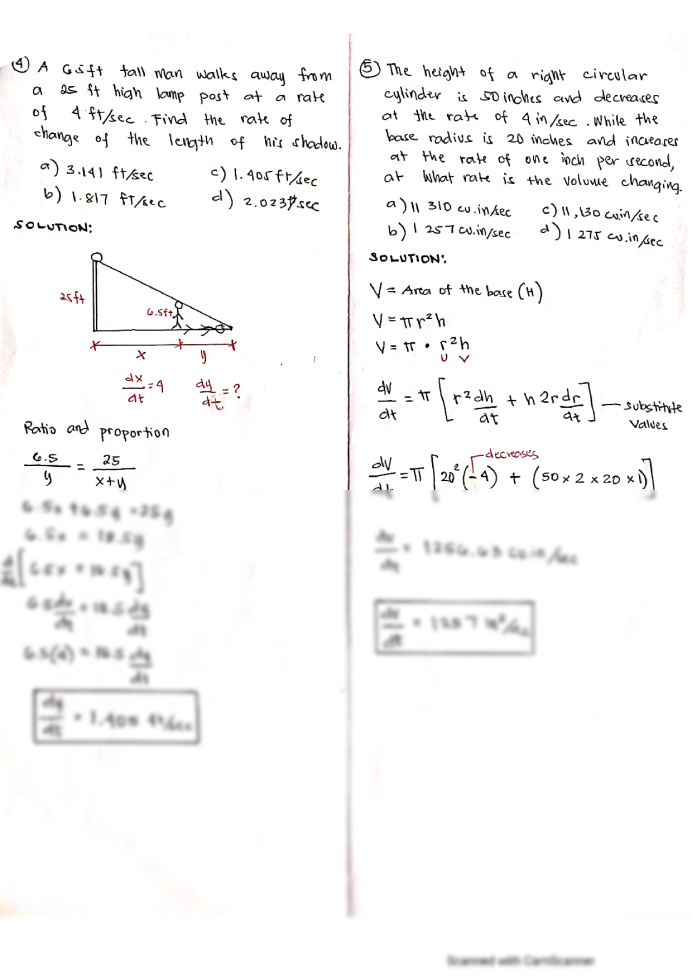 ④ A 6.5ft tall man walks away from
a 25 ft high lamp post at a rate
of 4 ft/sec. Find the rate of
change of the length of his shadow.
a) 3.141 ft/sec c) 1.405 ft/sec
b) 1.817 ft/sec d) 2.023 ft/sec
SOLUTION:
25ft
6.5ft
x y
dx/dt = 4 dy/dt = ?
Ratio and proportion
6.5/y = 25/x+y
6.5x + 6.5y = 25y
6.5x = 18.5y
6.5(4) = 18.5 dy/dt
dy/dt = 1.405 ft/sec
⑤ The height of a right circular
cylinder is 50 inches and decreases
at the rate of 4 in/sec. While the
base radius is 20 inches and increases
at the rate of one inch per second,
at what rate is the volume changing.
a) 11 310 cu.in/sec c) 11,130 cu.in/sec
b) 1 257 cu.in/sec d) 1 275 cu.in/sec
SOLUTION:
V = Area of the base (H)
V = πr²h
V = π • r²h
U V
dV/dt = π [r² dh/dt + h 2r dr/dt] — Substitute
values
decreases
dV/dt = π [20² (-4) + (50 x 2 x 20 x 1)]
= 1256.63 cu.in/sec
= 1257 in³/sec
Scanned with CamScanner